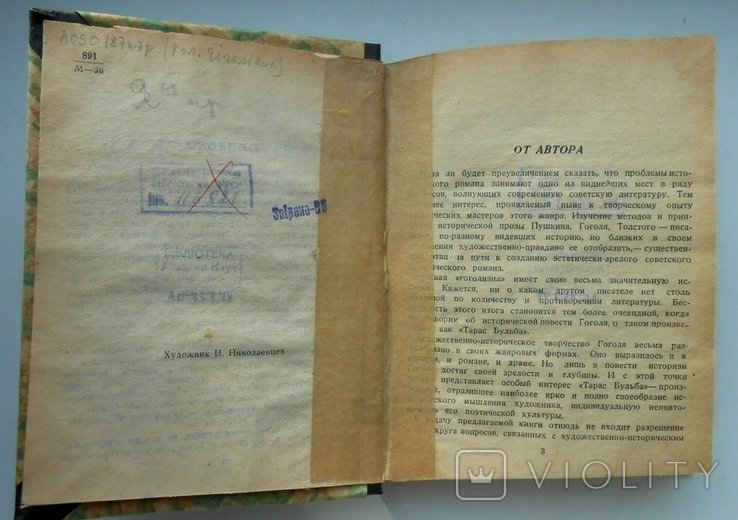 АО50187пдр (кол. Гоголіана)
891
М—36
БІБЛІОТЕКА
Художник И. Николаевцев
ОТ АВТОРА
на ли будет преувеличением сказать, что проблемы исто-
кого романа занимают одно из виднейших мест в ряду
сов, волнующих современную советскую литературу. Тем
нее интерес, проявляемый ныне к творческому опыту
ических мастеров этого жанра. Изучение методов и прин-
исторической прозы Пушкина, Гоголя, Толстого — писа-
по-разному видевших историю, но близких в своем
ении художественно-правдиво ее отобразить,— существен-
этап на пути к созданию эстетически-зрелого советского
ического романа.
ская «гоголиана» имеет свою весьма значительную ис-
Кажется, ни о каком другом писателе нет столь
ной по количеству и противоречиям литературы. Бес-
сть этого итога становится тем более очевидной, когда
ворим об исторической повести Гоголя, о таком произве-
как «Тарас Бульба».
ожественно-историческое творчество Гоголя весьма раз-
азно в своих жанровых формах. Оно выразилось и в
и, и романе, и драме. Но лишь в повести историзм
достиг своей зрелости и глубины. И с этой точки
представляет особый интерес «Тарас Бульба» — произ-
ие, отразившее наиболее ярко и полно своеобразие ис-
ческого мышления художника, индивидуальную неповто-
ость его поэтической культуры.
адачу предлагаемой книги отнюдь не входит разрешение
круга вопросов, связанных с художественно-историческим
3
VIOLITY